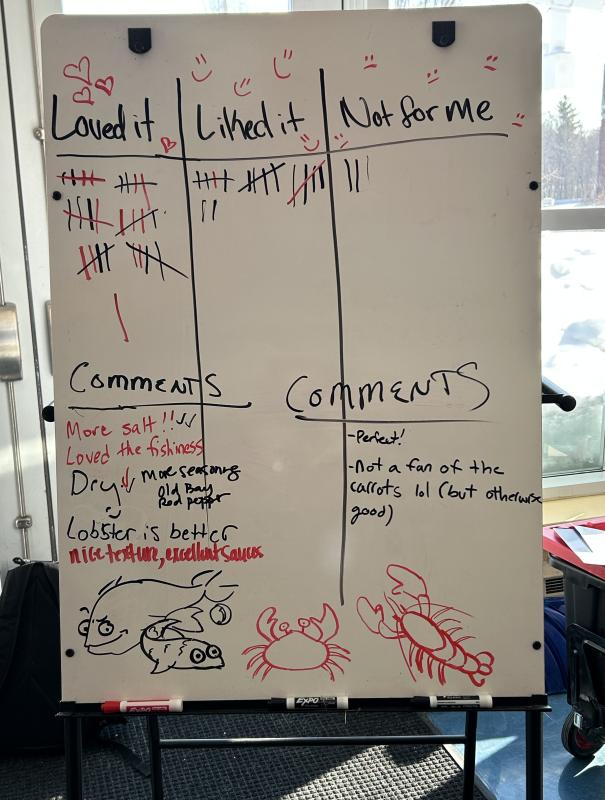 Loved it
Liked it
Not for me
Comments
More salt!!
Loved the fishiness
Dry
More seasoning
Old Bay
Red pepper
Lobster is better
nice texture, excellent sauces
Comments
-Perfect!
-Not a fan of the
carrots lol (but otherwise
good)
EXPO
EXPO